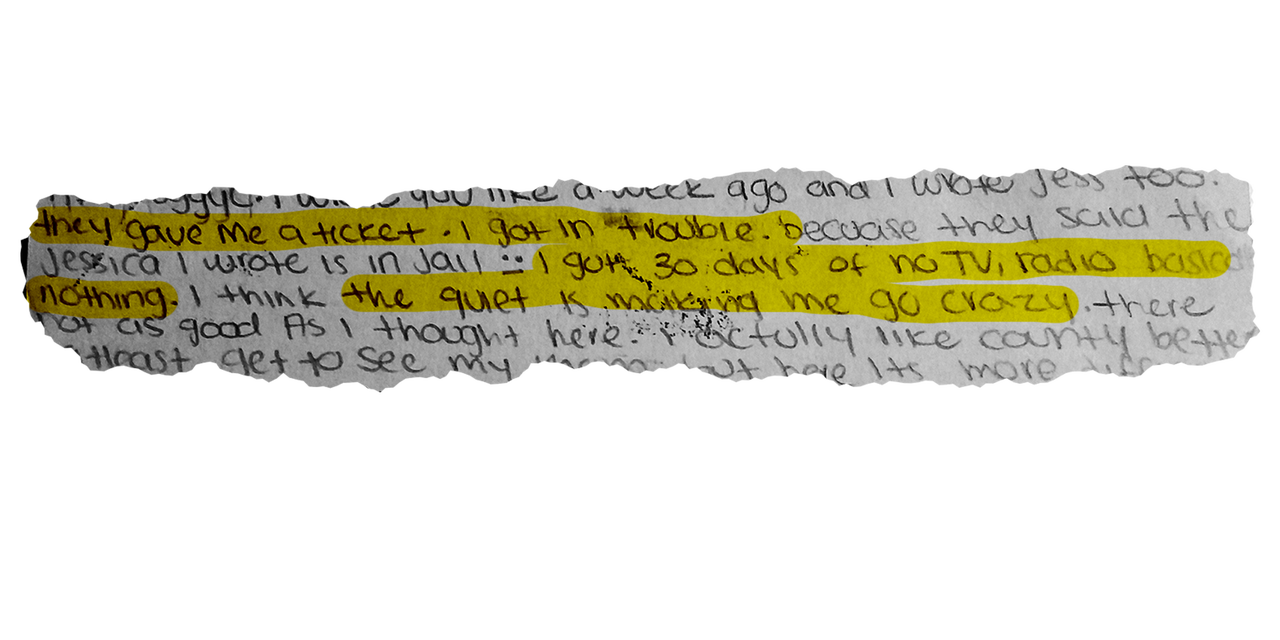 you like a week ago and I wrote Jess too.
they gave me a ticket. I got in trouble. becuase they said the
Jessica I wrote is in Jail :( I got 30 days of no TV, radio
nothing. I think the quiet is making me go crazy. there
not as good As I thought here. I actully like county better
atleast get to see my but here Its more